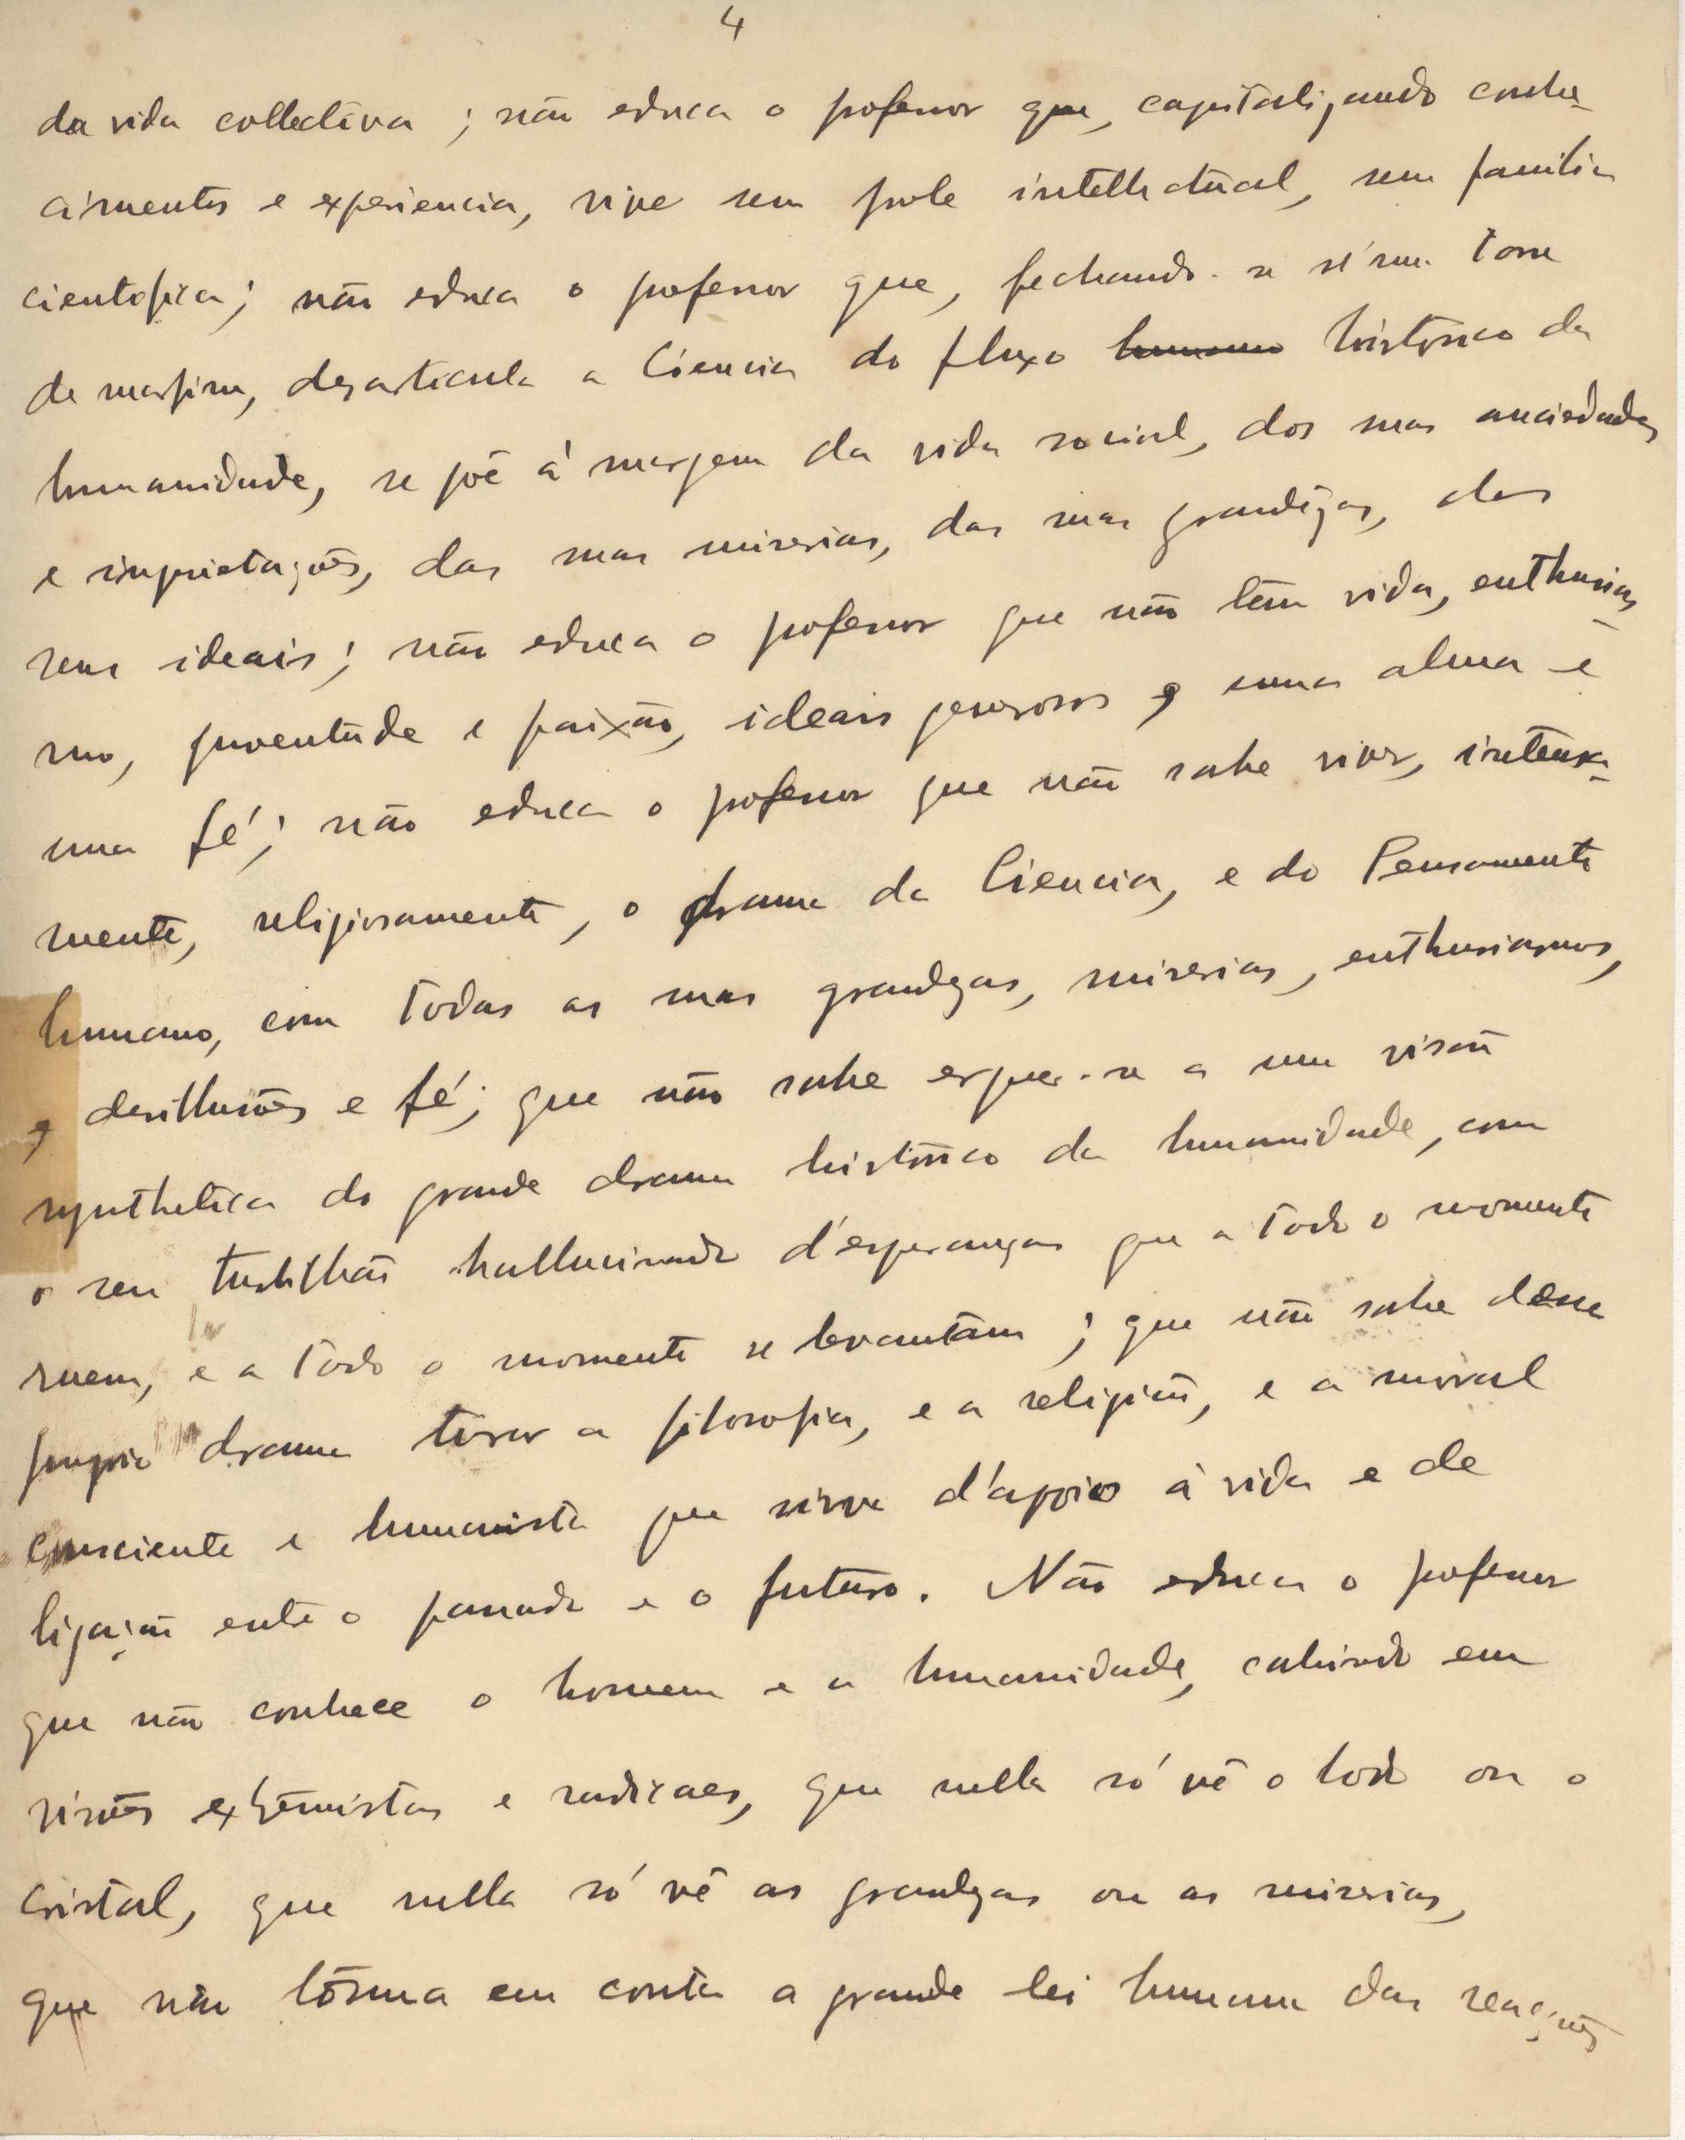 4
da vida collectiva; não educa o professor que, capitalizando conhe-
cimentos e experiencia, vive sem prole intellectual, sem familia
cientifica; não educa o professor que, fechando-se n'uma torre
de marfim, desarticula a Ciencia do fluxo humano historico da
humanidade, se põe á margem da vida social, das suas anciedades
e inquietações, das suas miserias, das suas grandêzas, dos
seus ideais; não educa o professor que não têm vida, enthusias-
mo, juventude e paixão, ideais generosos, uma alma e
uma fé; não educa o professor que não sabe viver, intensa-
mente, religiosamente, o drama da Ciencia, e do Pensamento
humano, com todas as suas grandezas, miserias, enthusiasmos,
e desillusões e fé; que não sabe erguer-se a uma visão
synthetica do grande drama histórico da humanidade, com
o seu turbilhão hallucinado d'esperanças que a todo o momento
ruem, e a todo o momento se levantam; que não sabe desse
proprio drama tirar a filosofia, e a religião, e a moral
consciente e humanista que sirva d'appoio á vida e de
ligação entre o passado e o futuro. Não educa o professor
que não conhece o homem e a humanidade, cahindo em
visões extremistas e radicaes, que nella só vê o lodo ou o
cristal, que nella só vê as grandezas ou as miserias,
que não tôma em conta a grande lei humana das reacções